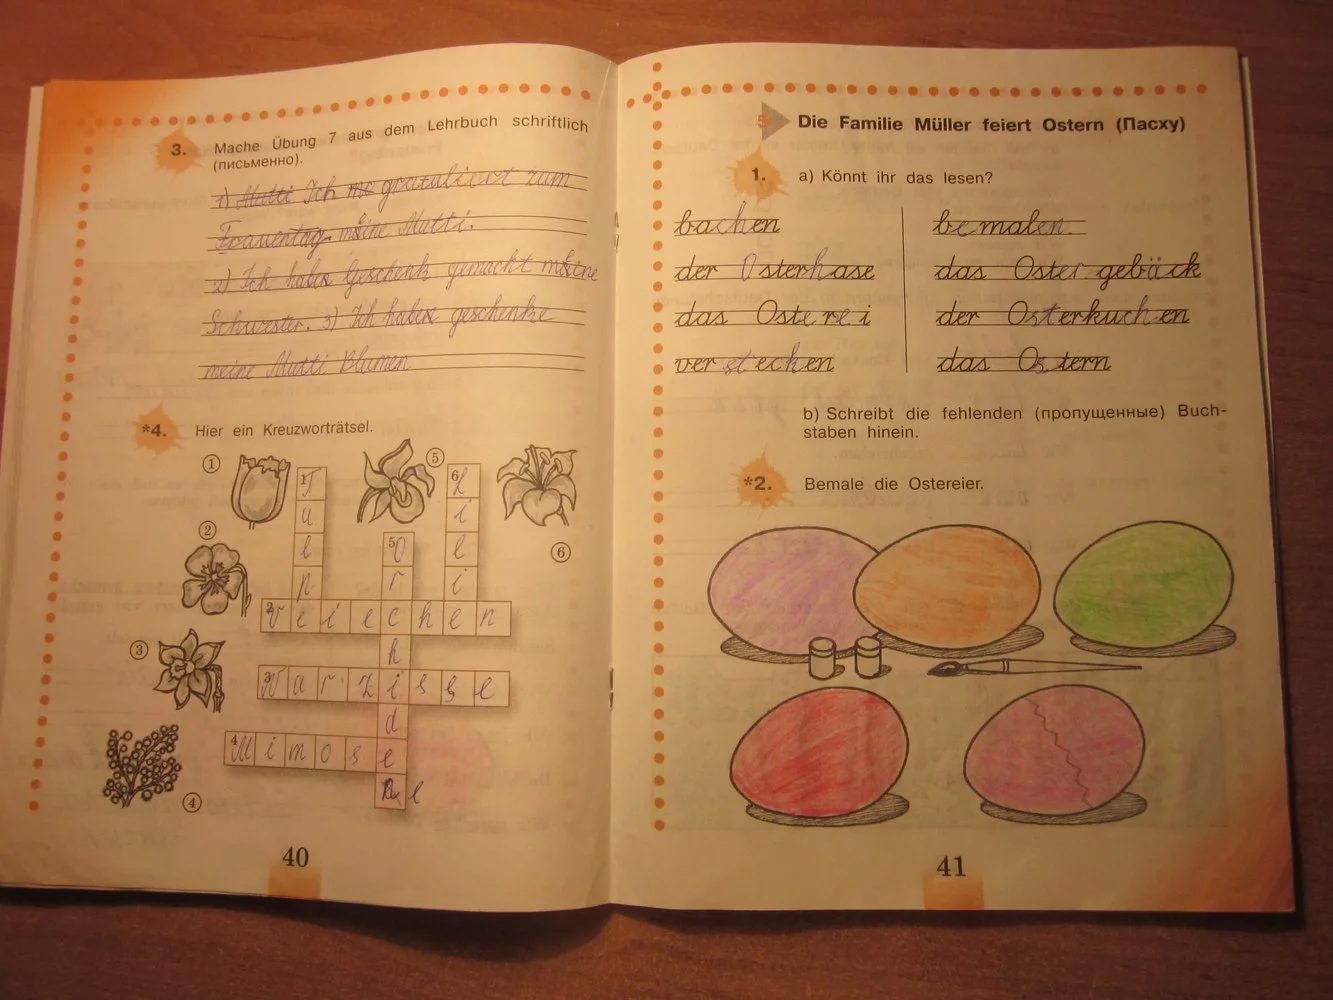 3. Mache Übung 7 aus dem Lehrbuch schriftlich
(письменно).
1) Mutti Ich gratuliert zum
Frauentag meine Mutti.
2) Ich habe Geschenk gemacht meine
Schwester. 3) Ich habe geschenke
meine Mutti Blumen
*4. Hier ein Kreuzworträtsel.
1
2
3
4
5
6
1 Tulpe
6 Lilie
5 Orchidee
2 Veiechen
3 Narzisse
4 Mimose
40
5 Die Familie Müller feiert Ostern (Пасху)
1. a) Könnt ihr das lesen?
bachen
der Osterhase
das Osterei
verstechen
bemalen
das Ostergebäck
der Osterkuchen
das Ostern
b) Schreibt die fehlenden (пропущенные) Buch-
staben hinein.
*2. Bemale die Ostereier.
41